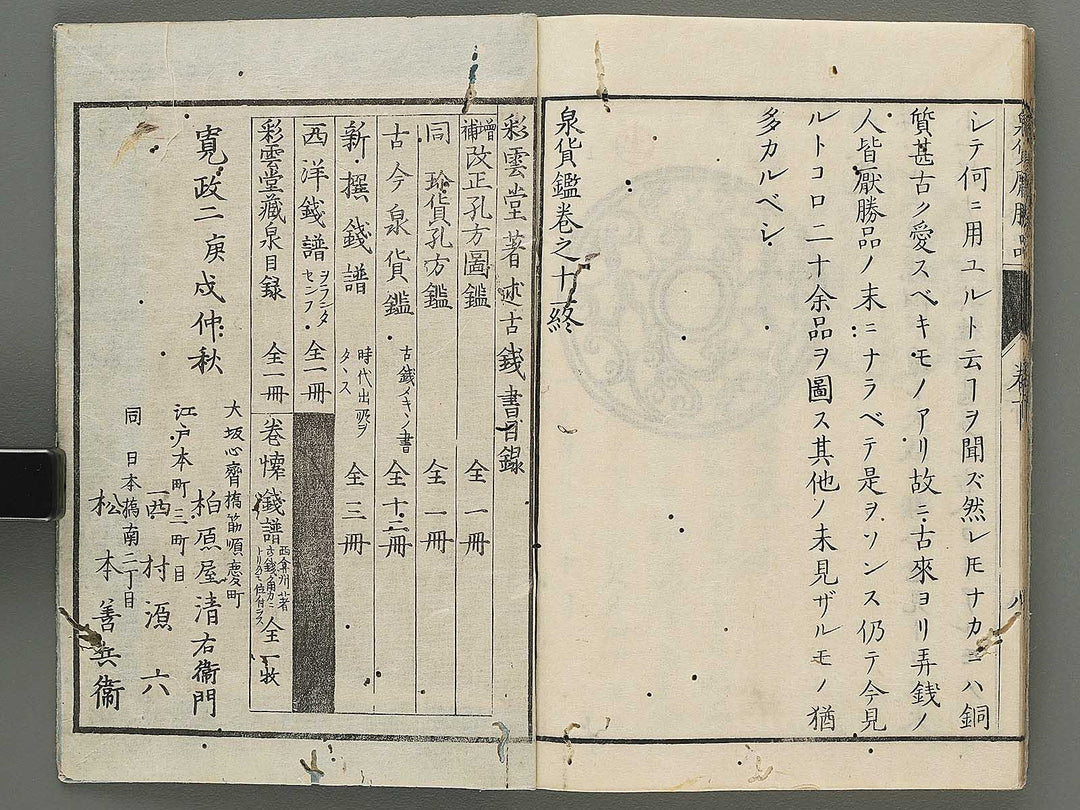 シテ何ニ用ユルト云ヿヲ聞ズ然レ𪜈ナカニハ銅
質甚古ク愛スベキモノアリ故ニ古來ヨリ弄銭ノ
人皆厭勝品ノ末ニナラベテ是ヲソンス仍テ今見
ルトコロ二十余品ヲ圖ス其他ノ未見ザルモノ猶
多カルベシ
泉貨鑑巻之十終
彩雲堂著述古錢書目録
増補改正孔方圖鑑 全一冊
同 珍貨孔方鑑 全一冊
古今泉貨鑑 古錢メキヽノ書 全十二冊
新撰錢譜 時代出所ヲタヽス 全三冊
西洋錢譜 ヲランダセンフ 全一冊
彩雲堂藏泉目録 全一冊
巻懐錢譜 全一枚
寛政二庚戌仲秋
大坂心齋橋筋順慶町
柏原屋清右衛門
江戸本町三町目
西村源六
同日本橋南二丁目
松本善兵衛